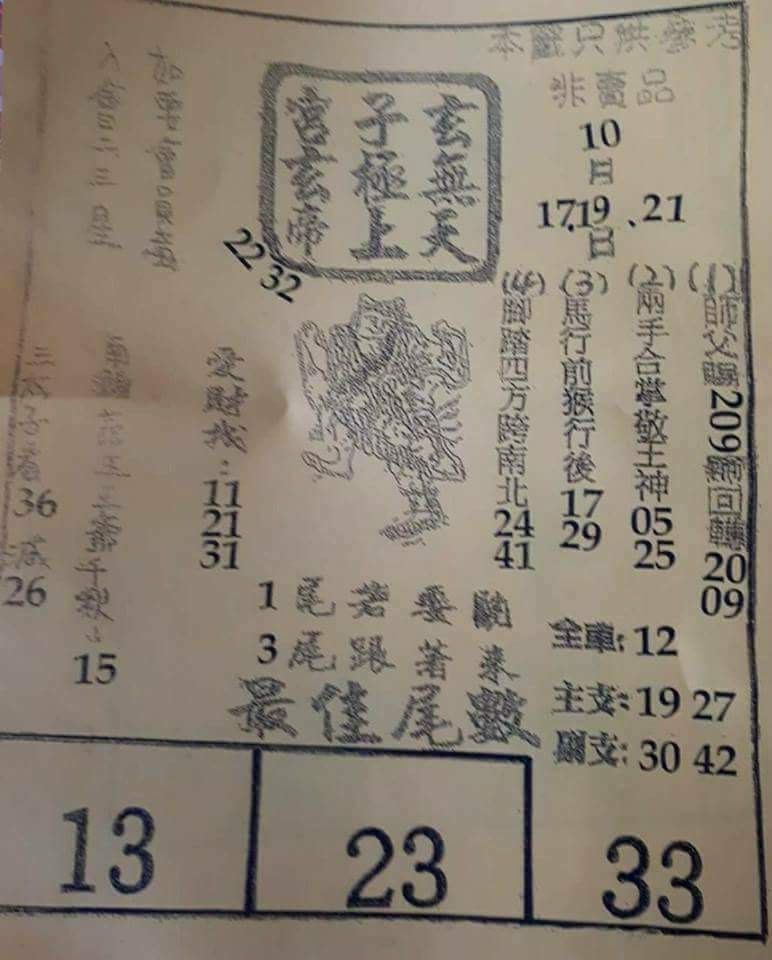 本籤只供參考
非賣品
10
日
17.19、21
日
玄無天
子極上
宮玄啼
22 32
(1)師父賜209輛回轉 20 09
(2)兩手合掌敬土神 05 25
(3)馬行前猴行後 17 29
(4)腳踏四方跨南北 24 41
愛賭找: 11 21 31
15
36
26
1尾若要
3尾跟著來
最佳尾數
全車: 12
主支: 19 27
副支: 30 42
13 23 33